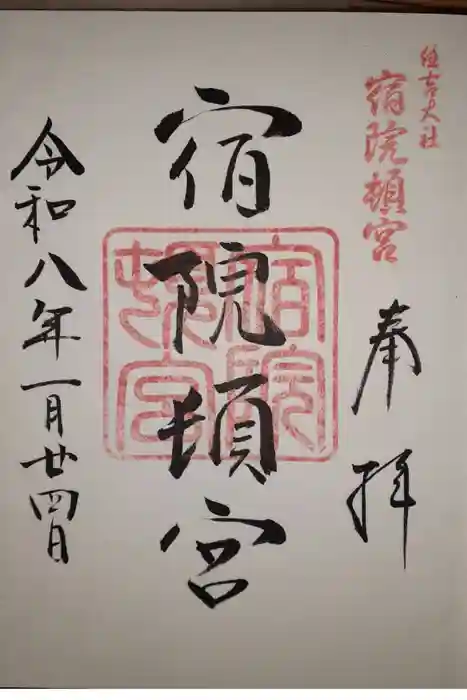 住吉大社
宿院頓宮
奉拝
宿院頓宮
宿院頓宮
令和八年一月廿四日